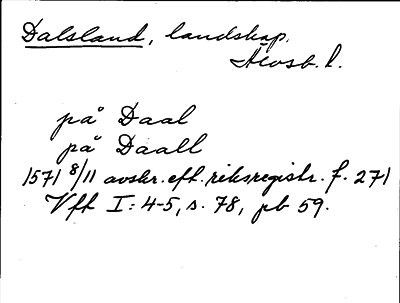 Dalsland, landskap.
Älvsb. l.
på Daal
på Daall
1571 8/11 avskr. eft. riksregistr. f. 271
Vft I: 4-5, s. 78, pb 59.